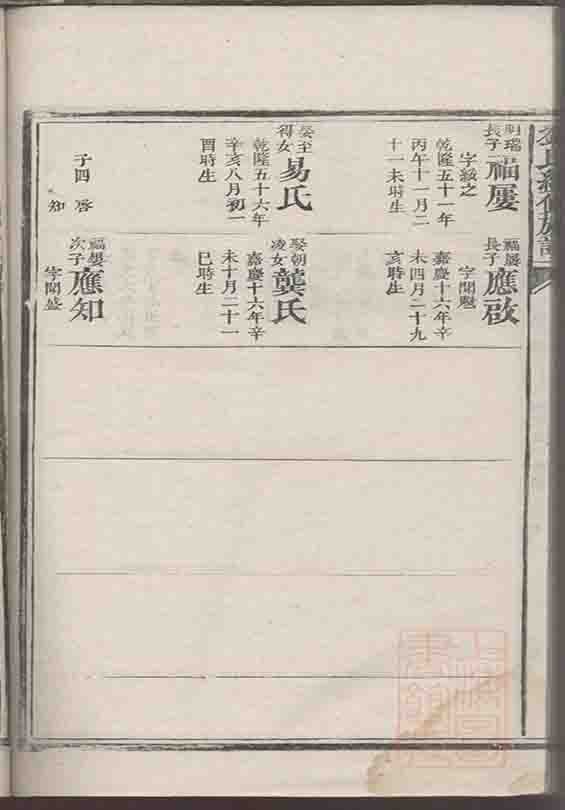 明瑞
長子
福屢
字綏之
乾隆五十一年
丙午十一月二
十一未時生
娶至
得女
易氏
乾隆五十六年
辛亥八月初一
酉時生
子四 啓
知
福屢
長子
應啟
字開魁
嘉慶十六年辛
未四月二十九
亥時生
娶朝
凌女
龔氏
嘉慶十六年辛
未十月二十一
巳時生
福屢
次子
應知
字開盛
上海圖
書館藏